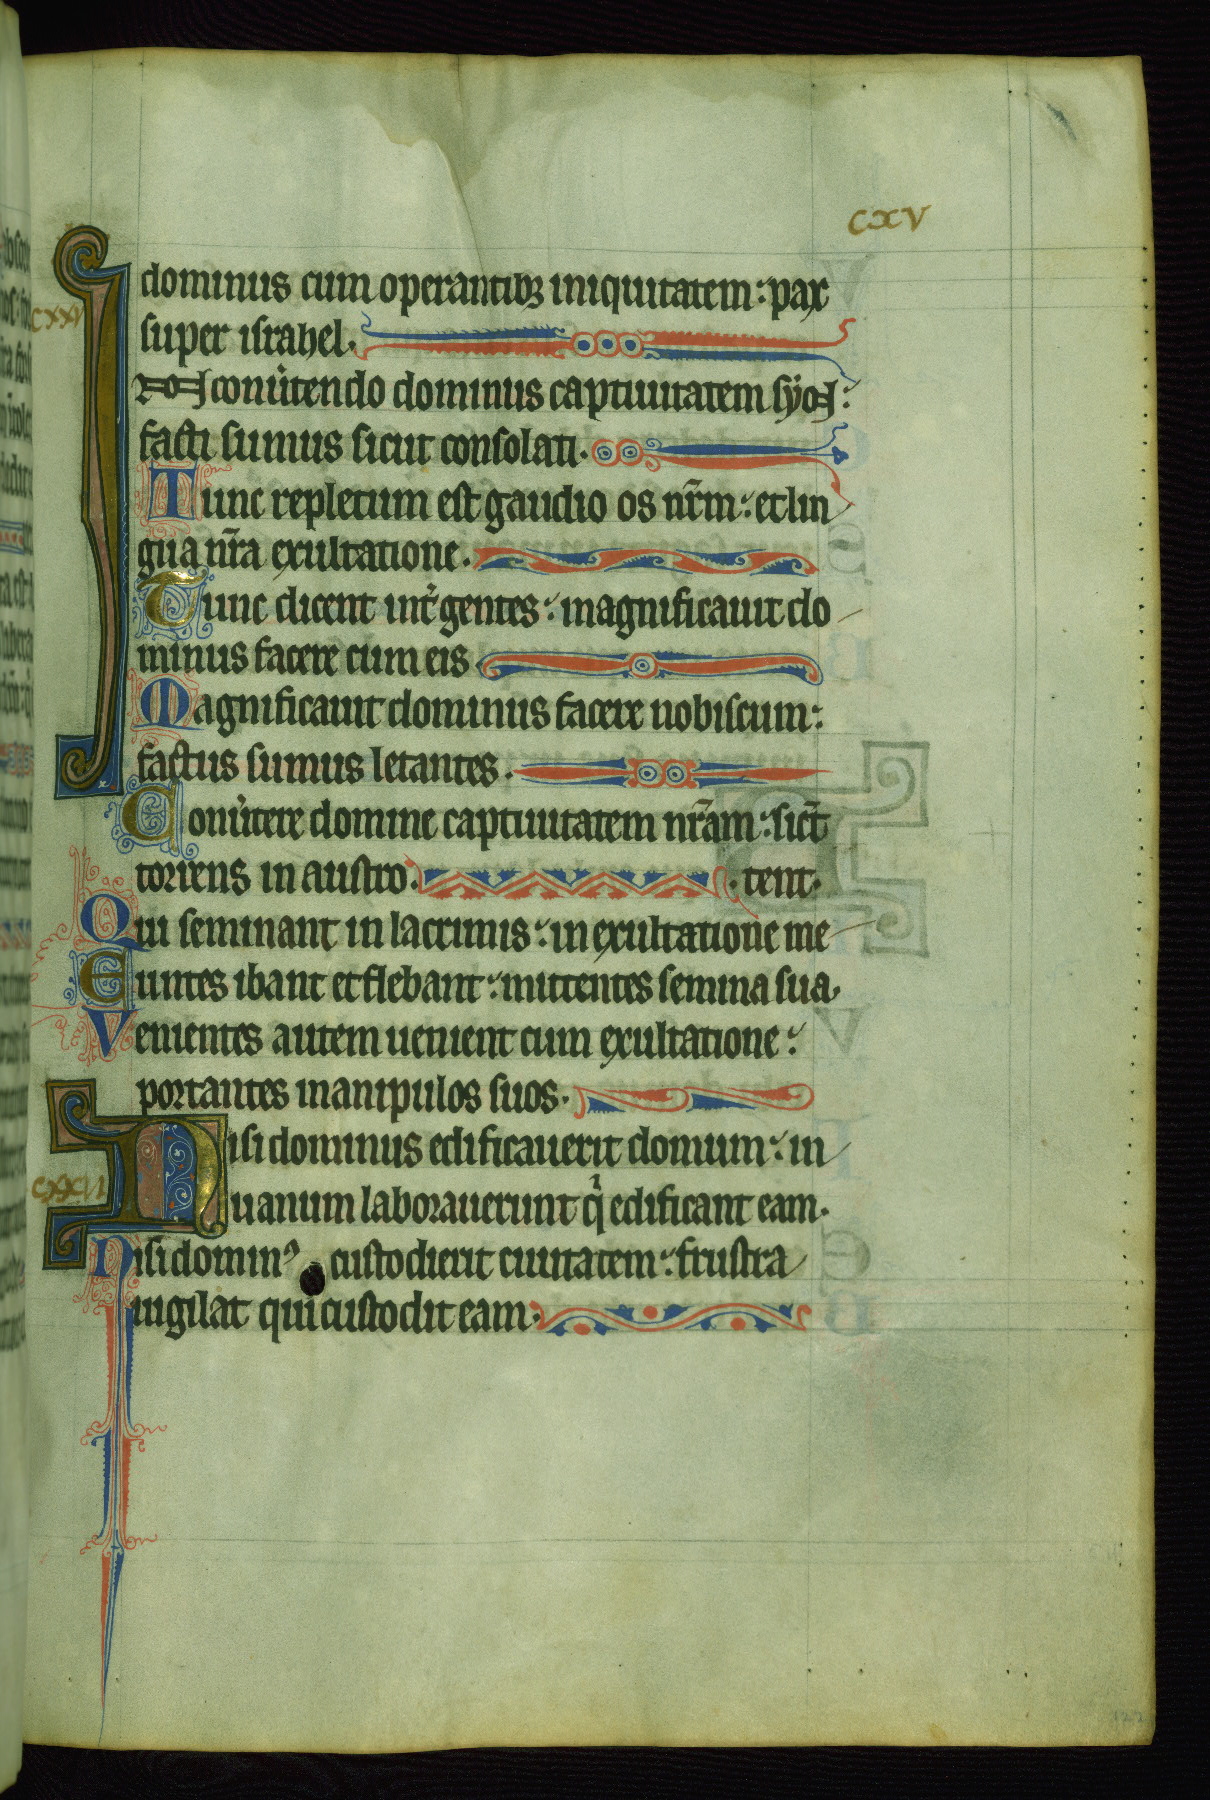 CXV
dominus cum operantibꝫ iniquitatem: pax
CXXV
super israhel.
IN conũtendo dominus captiuitatem syon:
facti sumus sicut consolati.
Tunc repletum est gaudio os nr̃m: et lin
gua nr̃a exultatione.
Tunc dicent int̃ gentes: magnificauit do
minus facere cum eis
Magnificauit dominus facere nobiscum:
factus sumus letantes.
Conũtere domine captiuitatem nr̃am: sic̃t
toriens in austro. . tent.
Qui seminant in lacrimis: in exultatione me
Euntes ibant et flebant: mittentes semina sua.
Venientes autem uenient cum exultatione:
portantes manipulos suos.
Nisi dominus edificauerit domum: in
CXXVI
uanum laborauerunt qⁱ edificant eam.
Nisi dominꝰ custodierit ciuitatem: frustra
uigilat qui custodit eam.
122